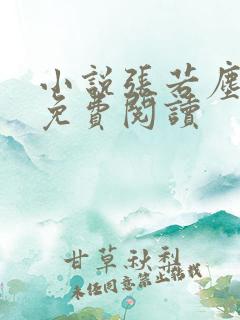 小説張若塵
免費閱讀
甘草秋梨
未經同意禁止轉載